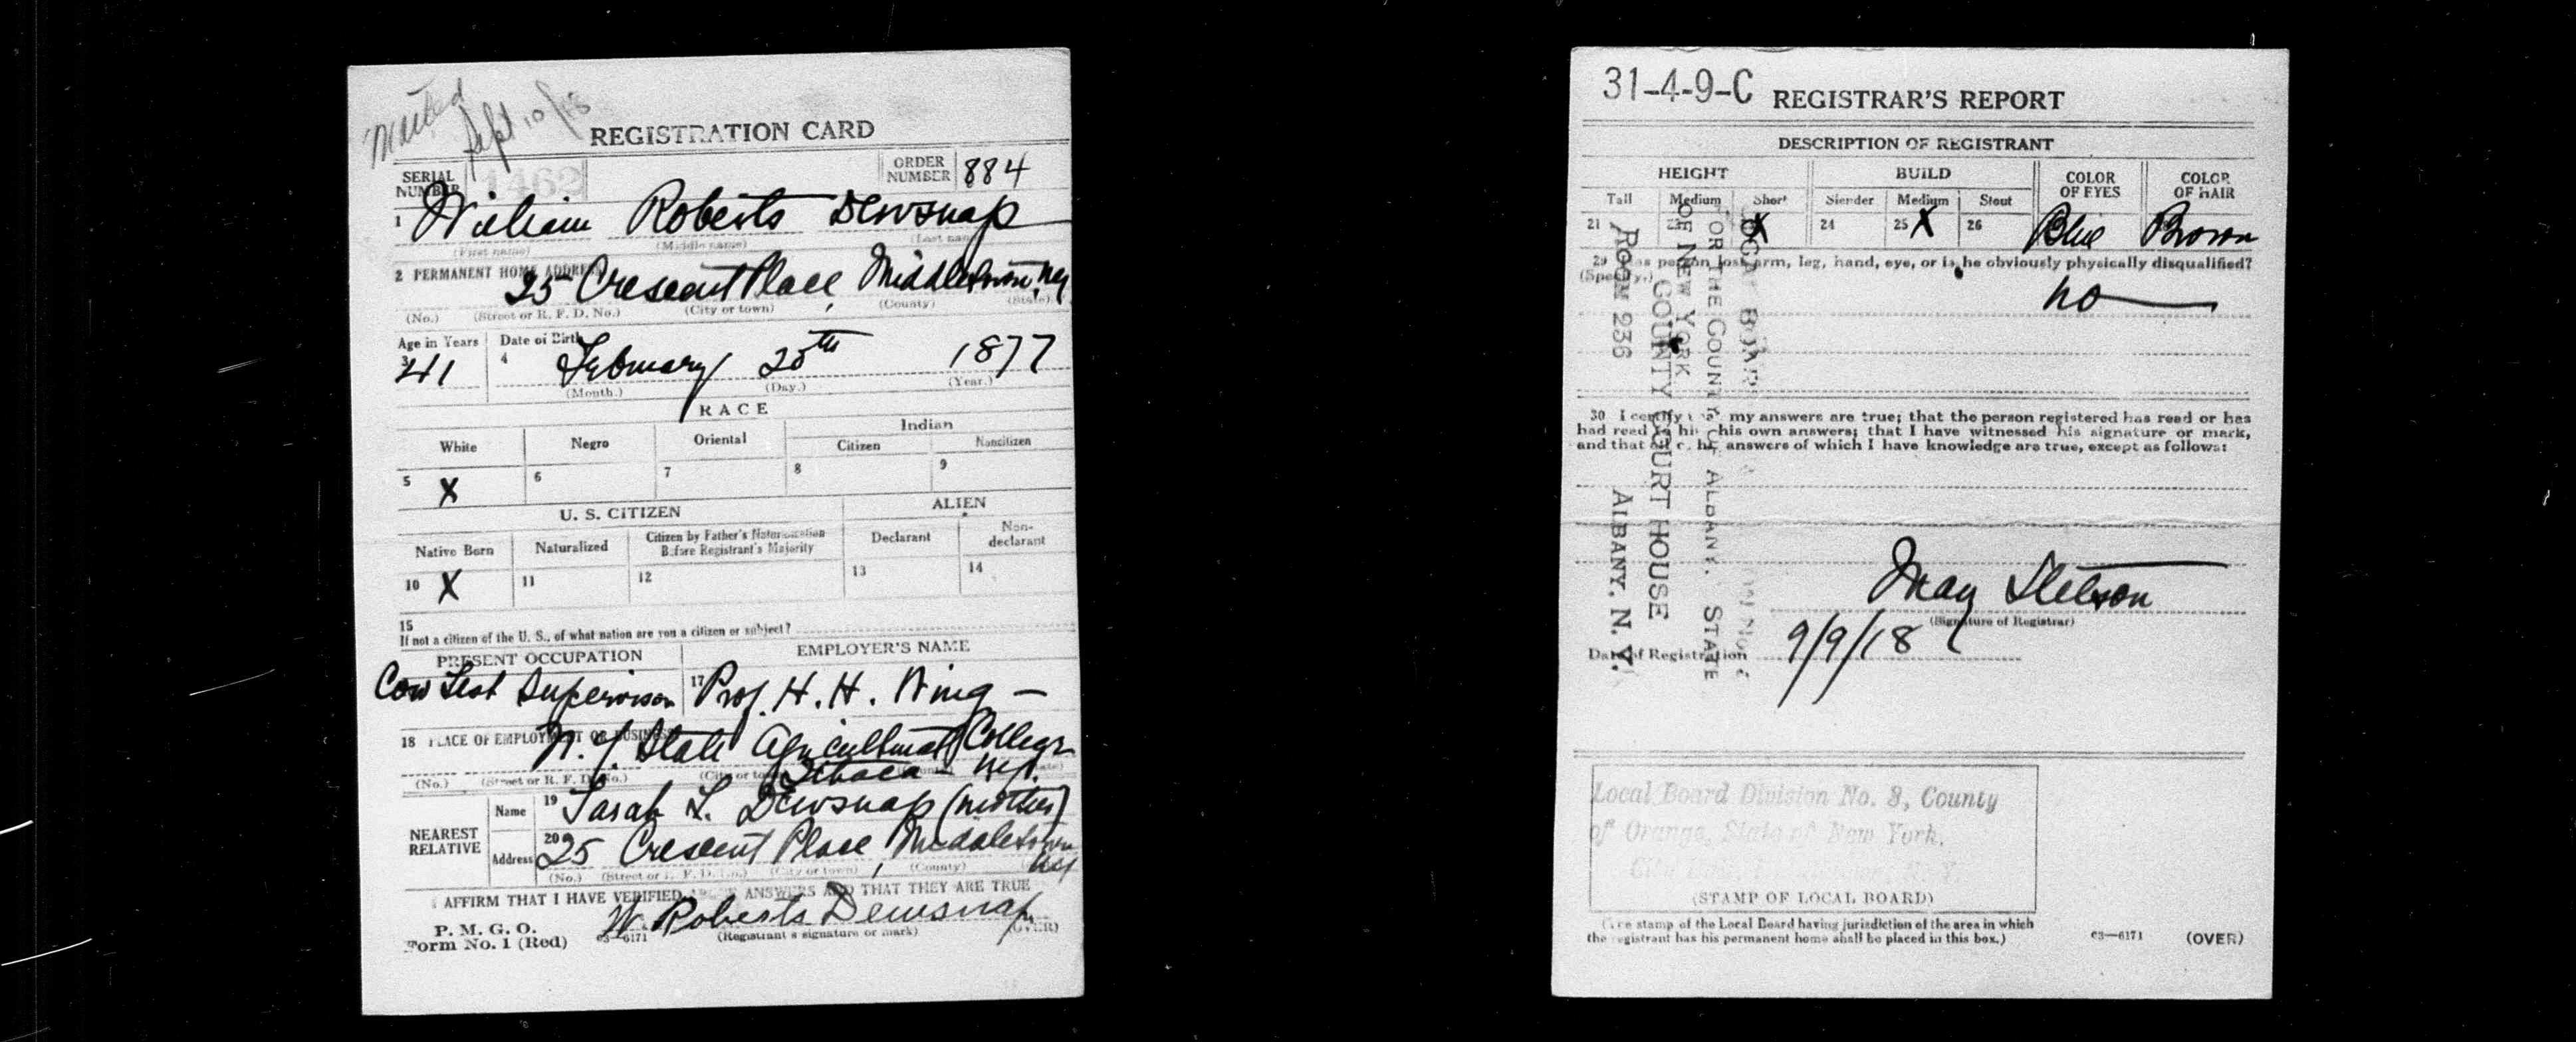 Mailed
Sept 10/18
REGISTRATION CARD
SERIAL NUMBER 1462 ORDER NUMBER 884
1 William Roberts Dewsnap
(First name) (Middle name) (Last name)
2 PERMANENT HOME ADDRESS
25 Crescent Place, Middletown, NY
(No.) (Street or R. F. D. No.) (City or town) (County) (State)
Age in Years Date of Birth
3 41 4 February 20th 1877
(Month.) (Day.) (Year.)
RACE
White Negro Oriental Indian
Citizen Noncitizen
5 X 6 7 8 9
U. S. CITIZEN ALIEN
Native Born Naturalized Citizen by Father's Naturalization Before Registrant's Majority Declarant Non-declarant
10 X 11 12 13 14
15
If not a citizen of the U. S., of what nation are you a citizen or subject?
PRESENT OCCUPATION EMPLOYER'S NAME
Cow Test Supervisor 17 Prof. H. H. Wing —
18 PLACE OF EMPLOYMENT OR BUSINESS
N.Y. State Agricultural College
Ithaca - NY.
(No.) (Street or R. F. D. No.) (City or town) (County) (State)
NEAREST RELATIVE
Name 19 Sarah L. Dewsnap (mother)
Address 20 25 Crescent Place, Middletown NY
(No.) (Street or R. F. D. No.) (City or town) (County)
I AFFIRM THAT I HAVE VERIFIED ABOVE ANSWERS AND THAT THEY ARE TRUE
P. M. G. O.
Form No. 1 (Red) c3—6171 W. Roberts Dewsnap
(Registrant's signature or mark) (OVER)
31-4-9-C REGISTRAR'S REPORT
DESCRIPTION OF REGISTRANT
HEIGHT BUILD COLOR OF EYES COLOR OF HAIR
Tall Medium Short Slender Medium Stout
21 22 X 24 25 X 26 Blue Brown
29 Has person lost arm, leg, hand, eye, or is he obviously physically disqualified?
(Specify.)
no
30 I certify that my answers are true; that the person registered has read or has
had read to him his own answers; that I have witnessed his signature or mark,
and that all of his answers of which I have knowledge are true, except as follows:
LOCAL BOARD
FOR THE COUNTY OF ALBANY, STATE
OF NEW YORK
COUNTY COURT HOUSE
ROOM 236 ALBANY, N. Y.
May Stetson
(Signature of Registrar)
Date of Registration 9/9/18
Local Board Division No. 3, County
of Orange, State of New York.
(STAMP OF LOCAL BOARD)
(The stamp of the Local Board having jurisdiction of the area in which
the registrant has his permanent home shall be placed in this box.)
c3—6171 (OVER)